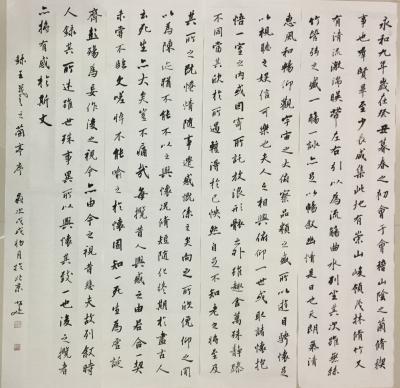 永和九年歲在癸丑暮春之初會于會稽山陰之蘭亭脩禊
事也羣賢畢至少長咸集此地有崇山峻領茂林脩竹又
有清流激湍暎帶左右引以為流觴曲水列坐其次雖無絲
竹管弦之盛一觴一詠亦足以暢敘幽情是日也天朗氣清
惠風和暢仰觀宇宙之大俯察品類之盛所以遊目騁懷足
以極視聽之娛信可樂也夫人之相與俯仰一世或取諸懷抱
悟言一室之內或因寄所託放浪形骸之外雖趣舍萬殊靜躁
不同當其欣於所遇蹔得於己怏然自足不知老之將至及
其所之既惓情隨事遷感慨係之矣向之所欣俛仰之間
以為陳迹猶不能不以之興懷況脩短隨化終期於盡古人
云死生亦大矣豈不痛哉每攬昔人興感之由若合一契
未嘗不臨文嗟悼不能喻之於懷固知一死生為虛誕
齊彭殤為妄作後之視今亦由今之視昔悲夫故列敘時
人錄其所述雖世殊事異所以興懷其致一也後之攬者
亦將有感於斯文
錄王羲之蘭亭序 歲次戊戌初月於北京